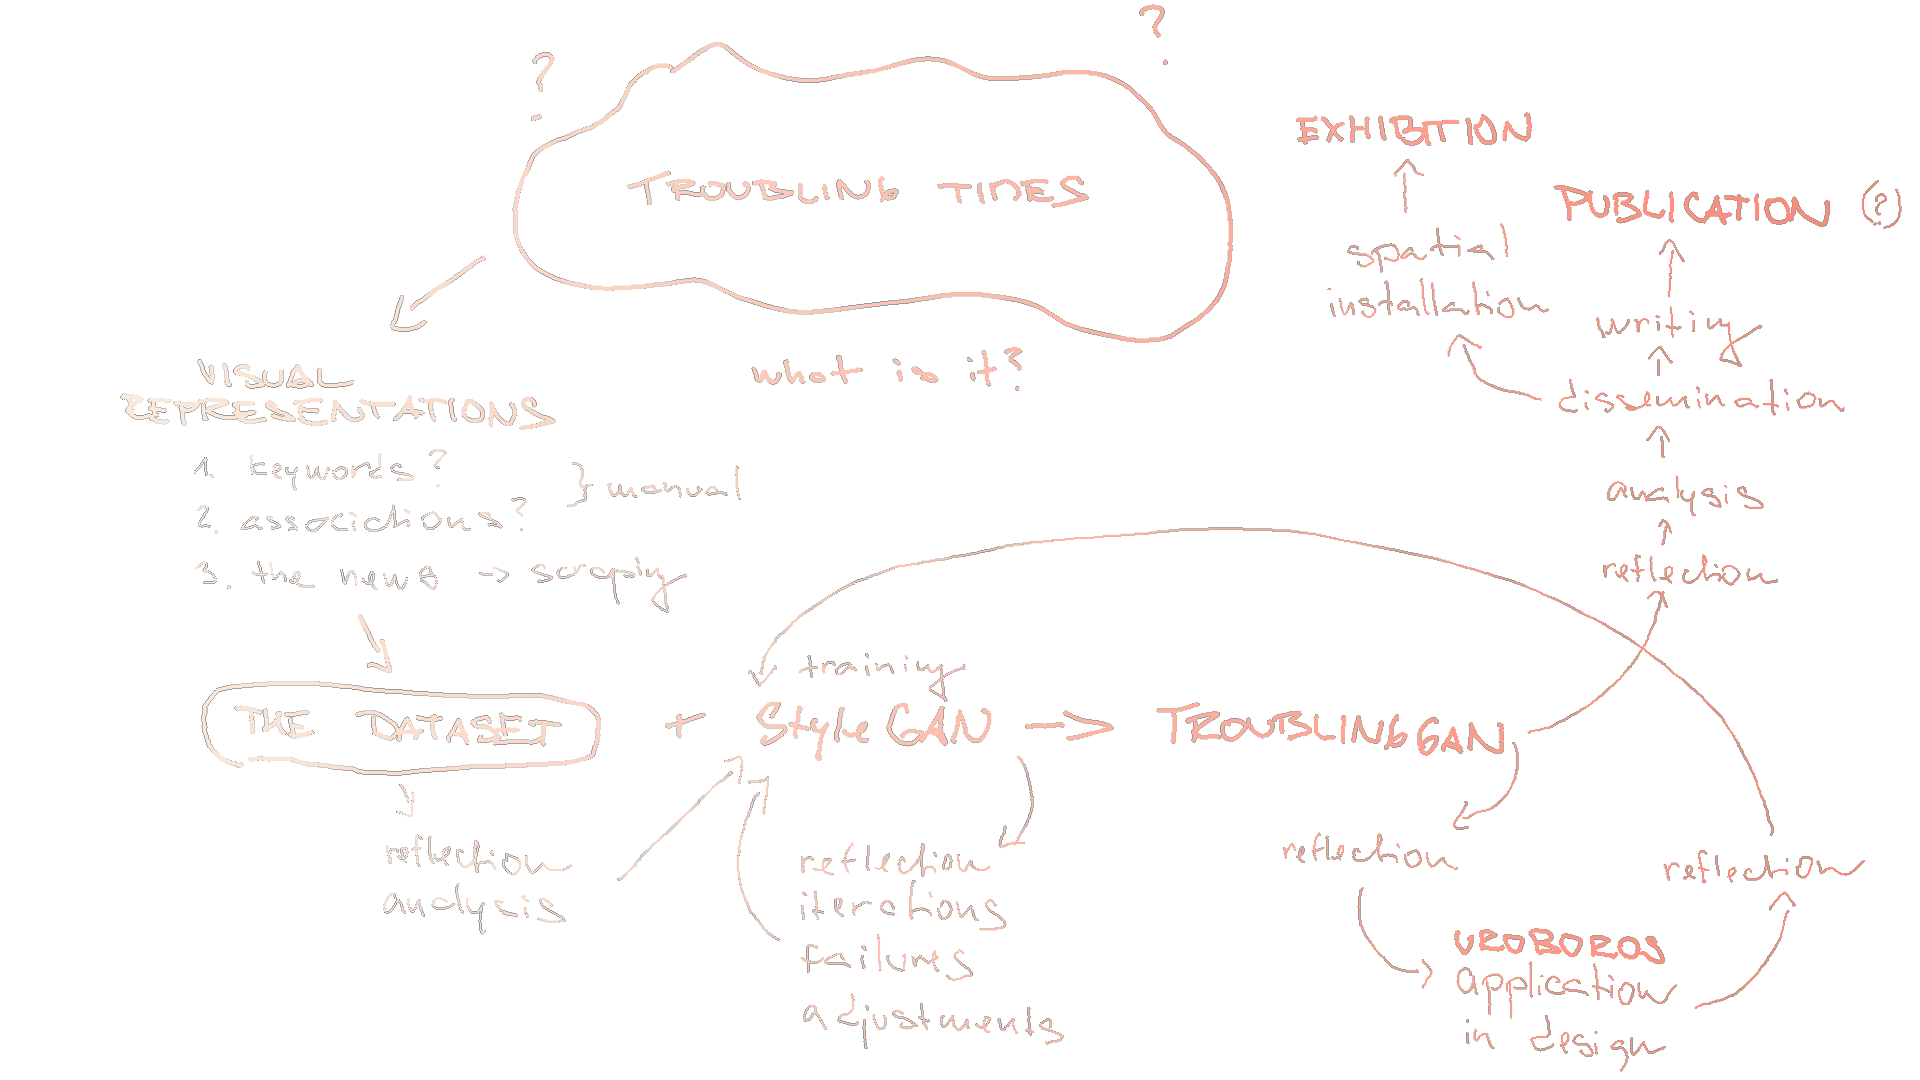 ?
?
TROUBLING TIDES
what is it?
VISUAL
REPRESENTATIONS
1. keywords?
2. associctions?
} manual
3. the news -> scraping
THE DATASET
+
training
StyleGAN
TROUBLINGGAN
reflection
analysis
reflection
iterations
failures
adjustments
reflection
UROBOROS
application
in design
reflection
reflection
analysis
dissemination
writing
PUBLICATION (?)
spatial
installation
EXHIBITION